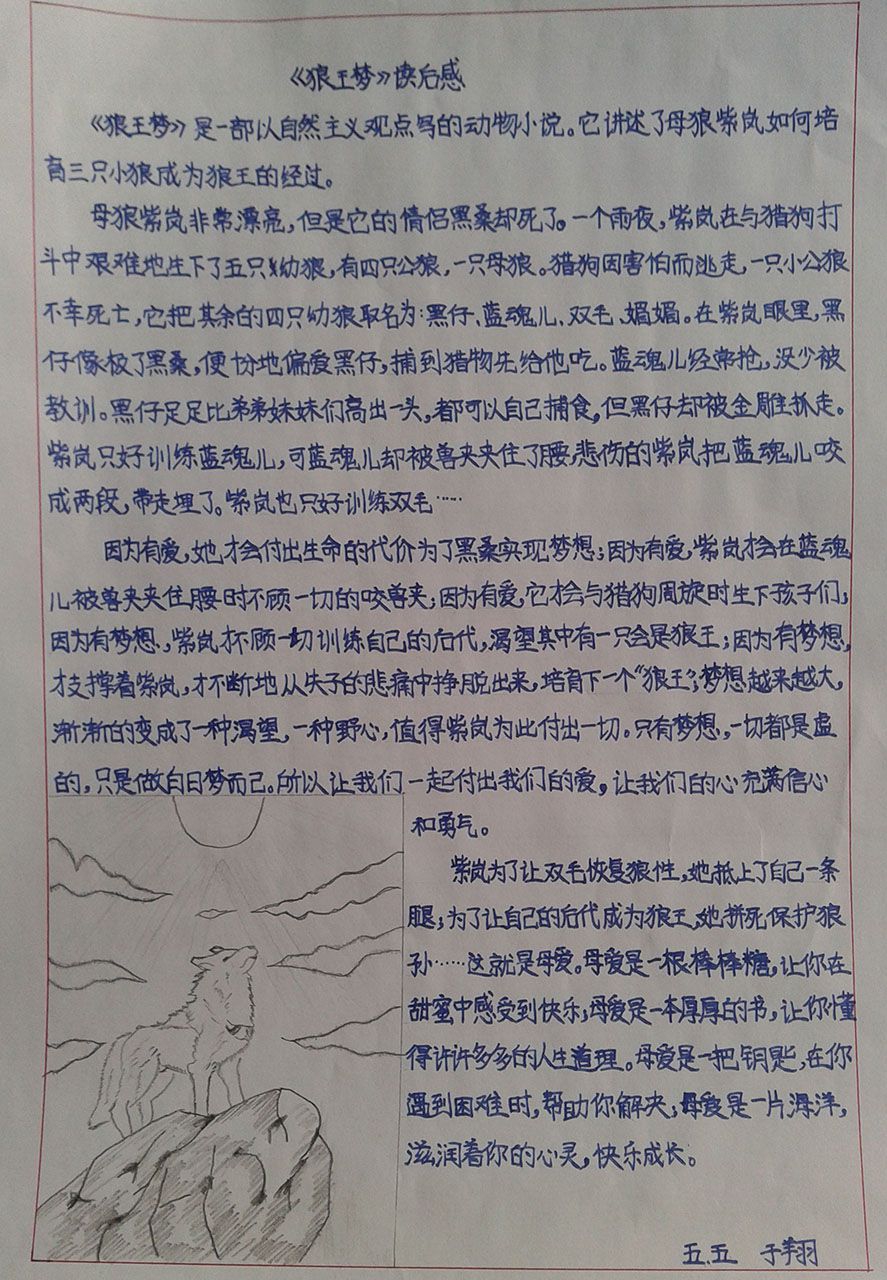 《狼王梦》读后感
《狼王梦》是一部以自然主义观点写的动物小说。它讲述了母狼紫岚如何培
育三只小狼成为狼王的经过。
母狼紫岚非常漂亮，但是它的情侣黑桑却死了。一个雨夜，紫岚在与猎狗打
斗中艰难地生下了五只幼狼，有四只公狼，一只母狼。猎狗因害怕而逃走，一只小公狼
不幸死亡，它把其余的四只幼狼取名为：黑仔、蓝魂儿、双毛、媚媚。在紫岚眼里，黑
仔像极了黑桑，便十分地偏爱黑仔，捕到猎物先给他吃。蓝魂儿经常抢，没少被
教训。黑仔足足比弟弟妹妹们高出一头，都可以自己捕食，但黑仔却被金雕抓走。
紫岚只好训练蓝魂儿，可蓝魂儿却被兽夹夹住了腰，悲伤的紫岚把蓝魂儿咬
成两段，带走埋了。紫岚也只好训练双毛……
因为有爱，她才会付出生命的代价为了黑桑实现梦想；因为有爱，紫岚才会在蓝魂
儿被兽夹夹住腰时不顾一切的咬兽夹；因为有爱，它才会与猎狗周旋时生下孩子们；
因为有梦想，紫岚才不顾一切训练自己的后代，渴望其中有一只会是狼王；因为有梦想，
才支撑着紫岚，才不断地从失子的悲痛中挣脱出来，培育下一个“狼王”；梦想越来越大，
渐渐的变成了一种渴望，一种野心，值得紫岚为此付出一切。只有梦想，一切都是虚
的，只是做白日梦而已。所以让我们一起付出我们的爱，让我们的心充满信心
和勇气。
紫岚为了让双毛恢复狼性，她抵上了自己一条
腿；为了让自己的后代成为狼王，她拼死保护狼
孙……这就是母爱。母爱是一根棒棒糖，让你在
甜蜜中感受到快乐；母爱是一本厚厚的书，让你懂
得许许多多的人生道理。母爱是一把钥匙，在你
遇到困难时，帮助你解决；母爱是一片海洋，
滋润着你的心灵，快乐成长。
五.五 于翔